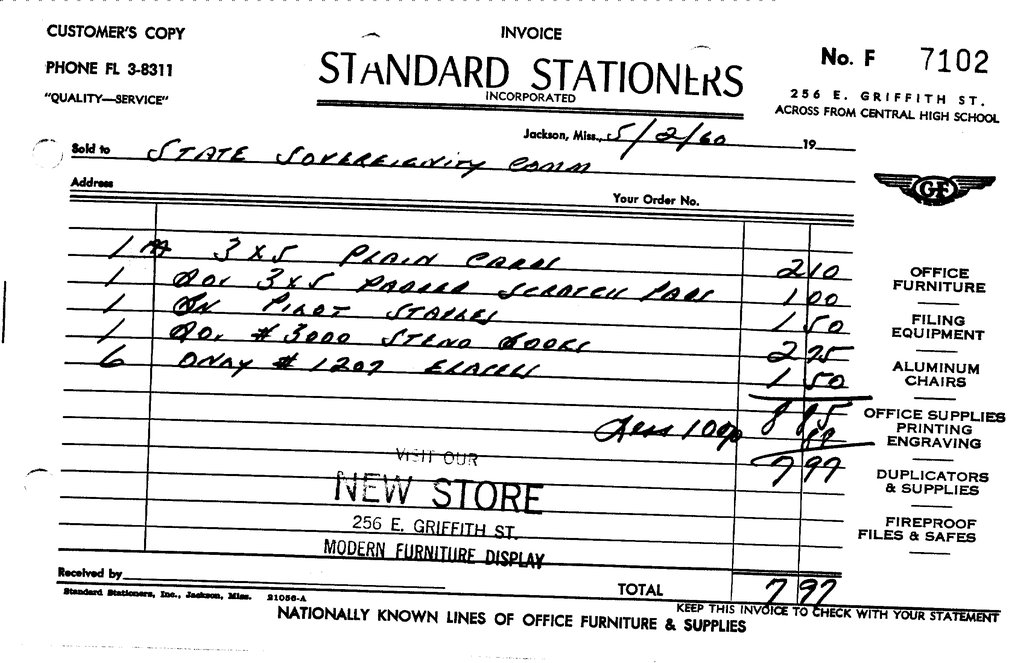 CUSTOMER'S COPY
INVOICE
No. F 7102
PHONE FL 3-8311
STANDARD STATIONERS
INCORPORATED
"QUALITY—SERVICE"
256 E. GRIFFITH ST.
ACROSS FROM CENTRAL HIGH SCHOOL
Jackson, Miss., 5/2/60 19
Sold to STATE SOVEREIGNITY COMM
Address
Your Order No.
GF
1 M 3 x 5 PLAIN CARDS 2 10
1 DO. 3 x 5 PADDED SCRATCH PADS 1 00
1 PILOT STAPLES 1 50
1 DO. # 3000 STENO BOOKS 2 75
6 # 1207 1 50
8 85
Less 10% 88
7 97
OFFICE
FURNITURE
FILING
EQUIPMENT
ALUMINUM
CHAIRS
OFFICE SUPPLIES
PRINTING
ENGRAVING
DUPLICATORS
& SUPPLIES
FIREPROOF
FILES & SAFES
VISIT OUR
NEW STORE
256 E. GRIFFITH ST.
MODERN FURNITURE DISPLAY
Received by
TOTAL 7 97
Standard Stationers, Inc., Jackson, Miss. 21056-A
KEEP THIS INVOICE TO CHECK WITH YOUR STATEMENT
NATIONALLY KNOWN LINES OF OFFICE FURNITURE & SUPPLIES